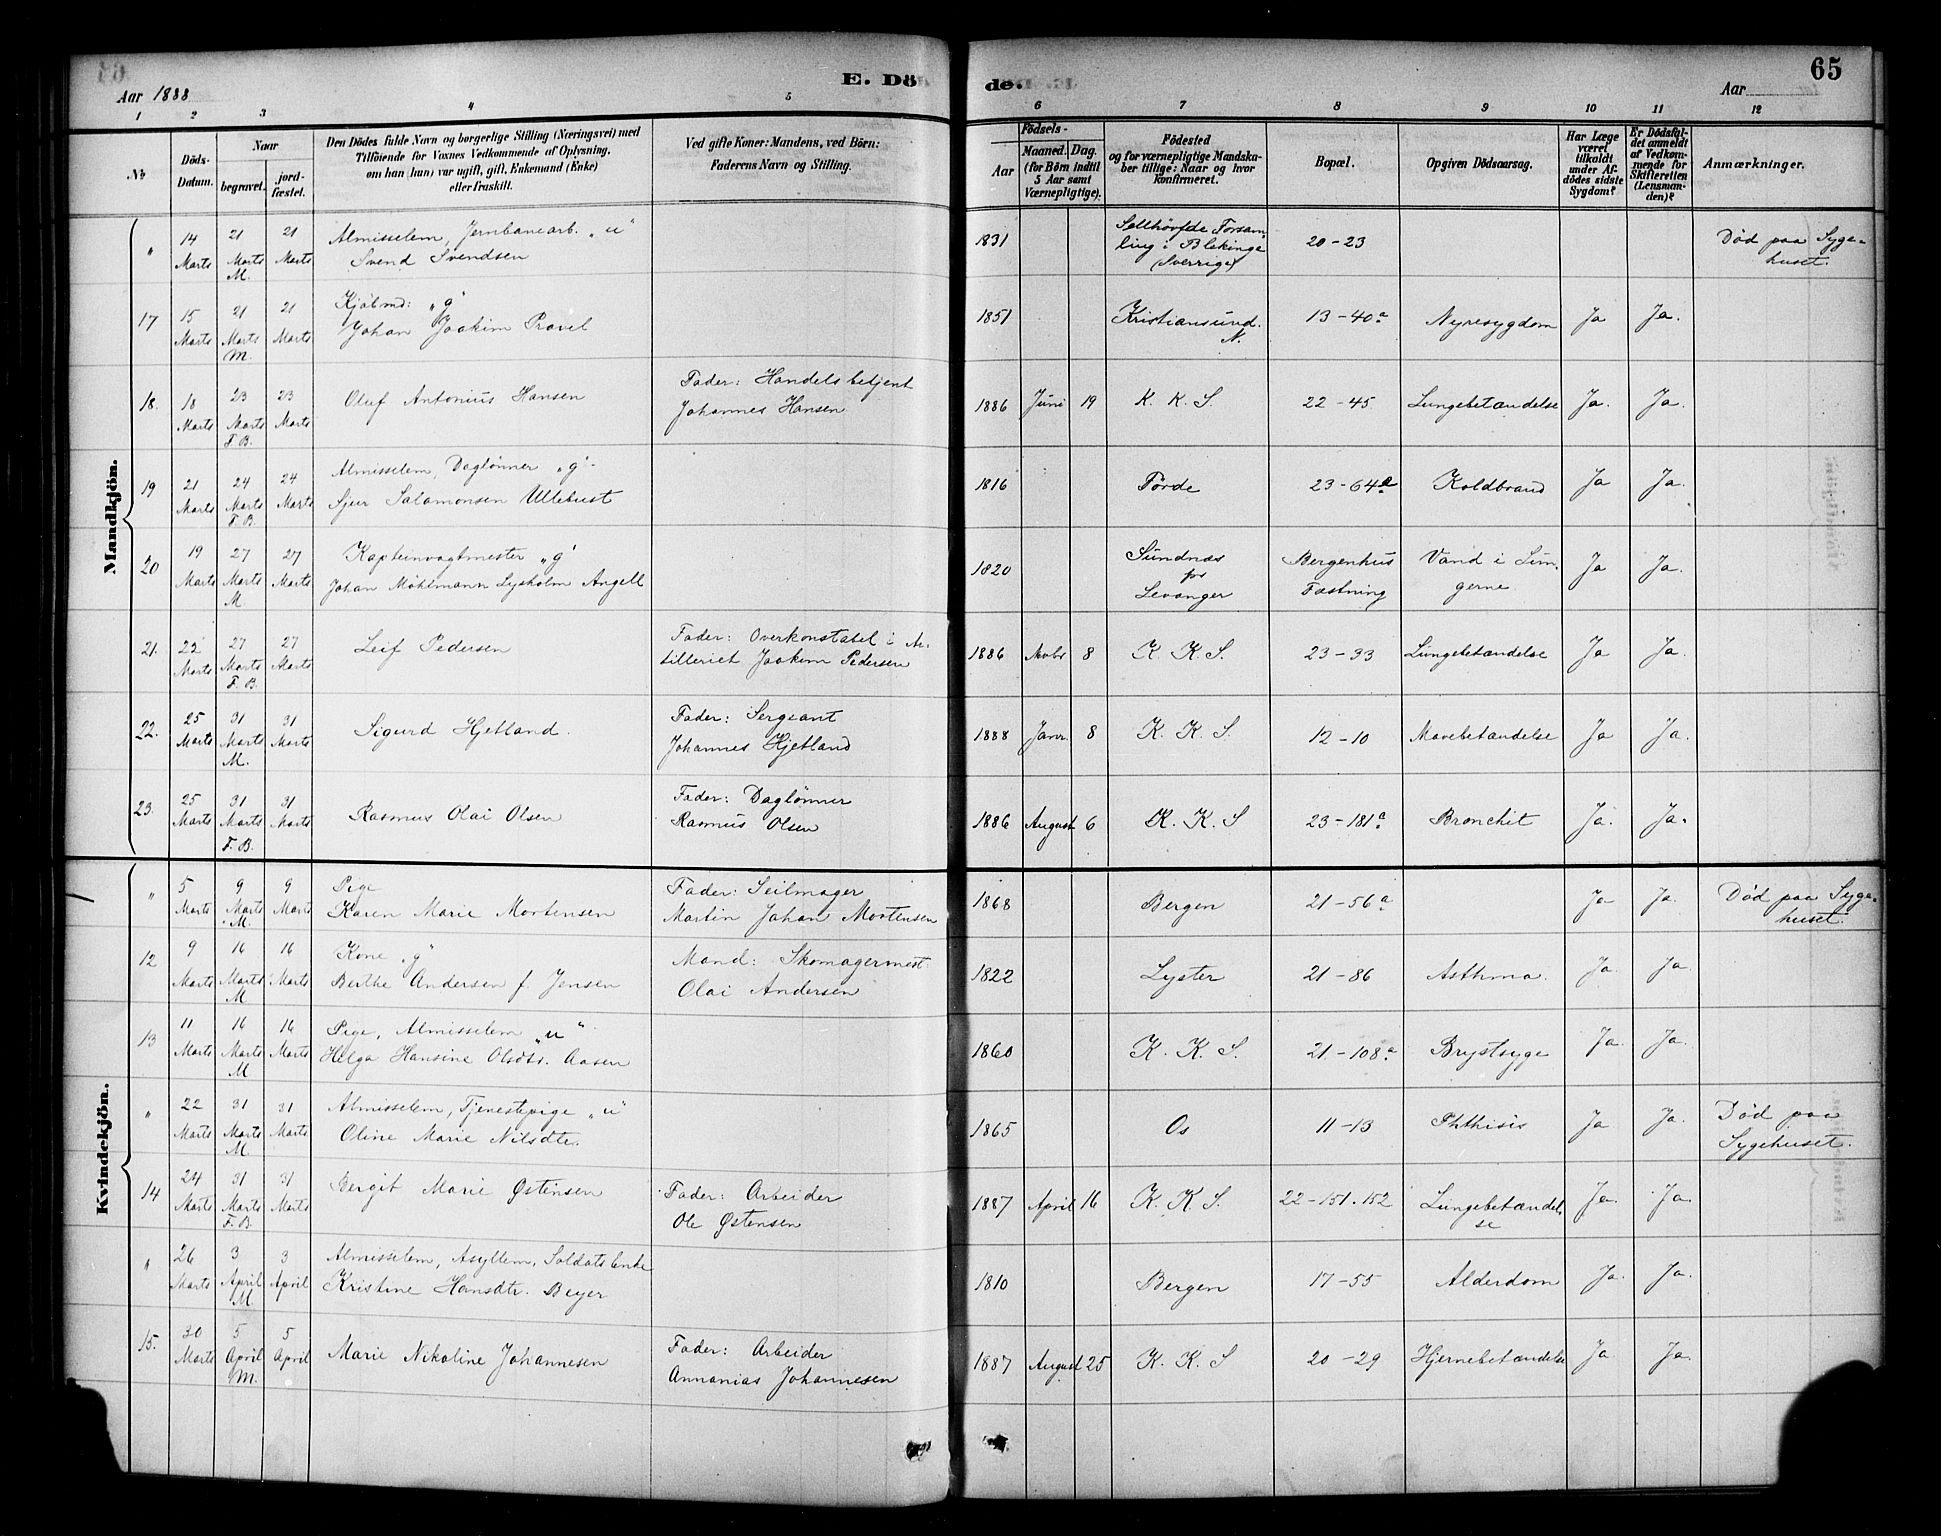 E. Döde.
65
Aar 1888
Aar
1 2 3 4 5 6 7 8 9 10 11 12
No
Döds-Datum.
Naar
begravet.
jordfæstet.
Den Dödes fulde Navn og borgerlige Stilling (Næringsvei) med
Tilföiende for Voxnes Vedkommende af Oplysning,
om han (hun) var ugift, gift, Enkemand (Enke)
eller fraskilt.
Ved gifte Koner: Mandens, ved Börn:
Faderens Navn og Stilling.
Födsels-
Aar
Maaned.
Dag.
(for Börn indtil
5 Aar samt
Værnepligtige).
Födested
og for værnepligtige Mandska-
ber tillige: Naar og hvor
konfirmeret.
Bopæl.
Opgiven Dödsaarsag.
Har Læge
været
tilkaldt
under Af-
dödes sidste
Sygdom?
Er Dödsfal-
det anmeldt
af Vedkom-
mende for
Skifteretten
(Lensman-
den)?
Anmærkninger.
Mandkjön.
" 14 Marts 21 Marts M. 21 Marts Almisselem, Jernbanearb. „u"
Svend Svendsen
1831 Sellhövfde Forsam-
ling i Blekinge
(Sverrige) 20-23 Död paa Syge-
huset.
17 15 Marts 21 Marts M. 21 Marts Kjöbmd: „g"
Johan Joakim Pravil
1851 Kristiansund.
N. 13-40a Nyresygdom Ja Ja.
18. 18 Marts 23 Marts F. B. 23 Marts Oluf Antonius Hansen
Fader: Handelsbetjent
Johannes Hansen
1886 Juni 19 K. K. S. 22-45. Lungebetændelse Ja. Ja.
19 21 Marts 24 Marts F. B. 24 Marts Almisselem, Daglönner „g"
Sjur Salamonsen Ullebust
1816 Förde 23-64 Koldbrand Ja Ja.
20 19 Marts 27 Marts M 27 Marts Kapteinvagtmester „g"
Johan Möhlmann Lysholm Angell
1820 Sundnæs
pr
Levanger Bergenhus
Fæstning Vand i Lun-
gerne Ja Ja.
21. 22 Marts 27 Marts F. B. 27 Marts Leif Pedersen
Fader: Overkonstabel i Ar-
tilleriet Joakim Pedersen
1886 Novbr 8 K. K. S. 23-33 Lungebetændelse Ja Ja.
22. 25 Marts 31 Marts M. 31 Marts Sigurd Hjetland.
Fader: Sergeant
Johannes Hjetland
1888 Janr. 8 K. K. S 12-10 Mavebetændelse Ja Ja.
23. 25 Marts 31 Marts F. B. 31 Marts Rasmus Olai Olsen
Fader: Daglönner
Rasmus Olsen
1886 August 6 K. K. S 23-181a Bronchit Ja. Ja.
Kvindekjön.
" 5 Marts 9 Marts M. 9 Marts Pige
Karen Marie Mortensen
Fader: Seilmager
Martin Johan Mortensen
1868 Bergen 21-56a Ja Ja. Död paa Syge-
huset.
12 9 Marts 16 Marts M 16 Marts Kone „g"
Berthe Andersen f. Jensen
Mand: Skomagermest.
Olai Andersen
1822 Lyster 21-86 Asthma. Ja. Ja.
13 11 Marts 16 Marts M 16 Marts Pige, Almisselem „u"
Helga Hansine Olsdtr. Aasen
1860 K. K. S. 21-108a Brystsyge Ja. Ja.
" 22 Marts 31 Marts M. 31 Marts Almisselem, Tjenestepige „u"
Oline Marie Nilsdtr.
1865 Os 11-13 Phthisis Ja Ja. Död paa
Sygehuset.
14 24 Marts 31 Marts F. B. 31 Marts Bergit Marie Østensen
Fader: Arbeider
Ole Østensen
1887 April 16 K. K. S. 22-151.152 Lungebetændel-
se Ja. Ja.
" 26 Marts 3 April M. 3 April Almisselem, Asyllem, Soldats Enke
Kristine Hansdtr. Beyer
1810 Bergen 17-55 Alderdom Ja. Ja.
15. 30 Marts 5 April M. 5 April Marie Nikoline Johannesen
Fader: Arbeider
Annanias Johannesen
1887 August 25 K. K. S 20-29 Hjernebetændelse Ja Ja.